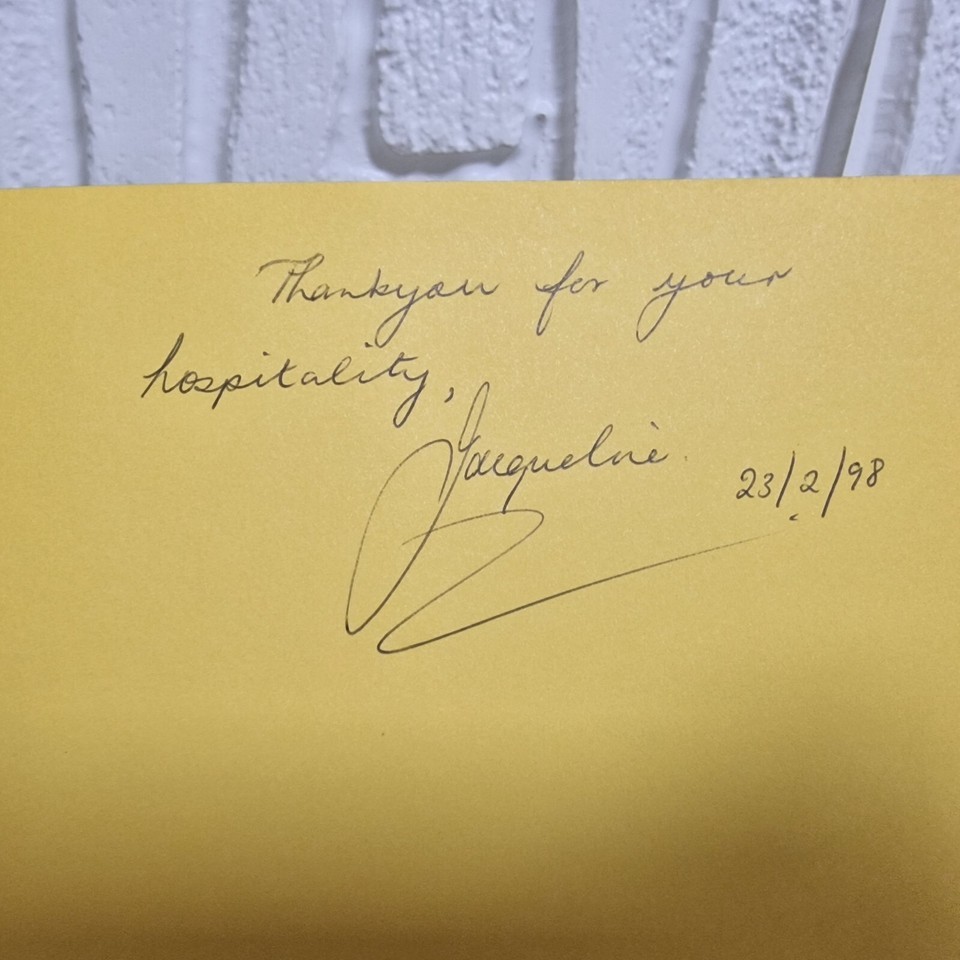 Thankyou for your
hospitality,
Jacqueline
23/2/98